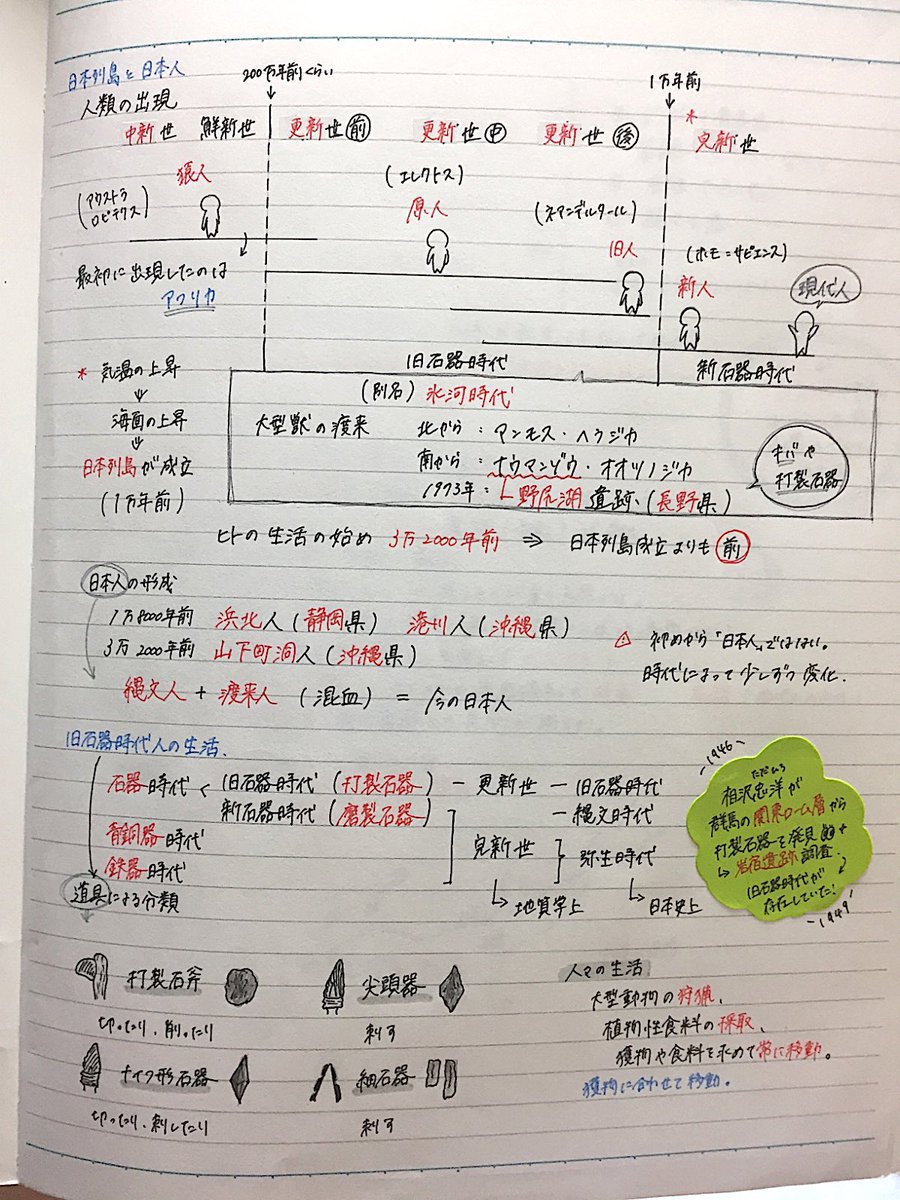 日本列島と日本人
200万年前くらい
1万年前
人類の出現
中新世 鮮新世 更新世 前 更新世 中 更新世 後 * 完新世
猿人
(アウストラロピテクス)
(エレクトス)
原人
(ネアンデルタール)
旧人
(ホモ=サピエンス)
新人
現代人
最初に出現したのは
アフリカ
旧石器時代
新石器時代
* 気温の上昇
海面の上昇
日本列島が成立
(1万年前)
(別名) 氷河時代
大型獣の渡来 北から : マンモス・ヘラジカ
南から : ナウマンゾウ・オオツノジカ
1973年 : 野尻湖遺跡 (長野県)
キバや
打製石器
ヒトの生活の始め 3万2000年前 ⇒ 日本列島成立よりも 前
日本人の形成
1万8000年前 浜北人 (静岡県) 港川人 (沖縄県)
3万2000年前 山下町洞人 (沖縄県)
縄文人 + 渡来人 (混血) = 今の日本人
⚠ 初めから「日本人」ではない。
時代によって少しずつ変化.
旧石器時代人の生活.
石器時代 < 旧石器時代 (打製石器) - 更新世 - 旧石器時代
新石器時代 (磨製石器) - 縄文時代
青銅器時代
完新世 } 弥生時代
鉄器時代
道具による分類
↳地質学上 ↳日本史上
1946
ただひろ
相沢忠洋が
群馬の関東ローム層から
打製石器を発見
↳岩宿遺跡調査.
旧石器時代が
存在していた!
1949
打製石斧
切ったり、削ったり
尖頭器
刺す
ナイフ形石器
切ったり、刺したり
細石器
刺す
人々の生活
大型動物の狩猟、
植物性食料の採取、
獲物や食料を求めて常に移動。
獲物に合わせて移動。